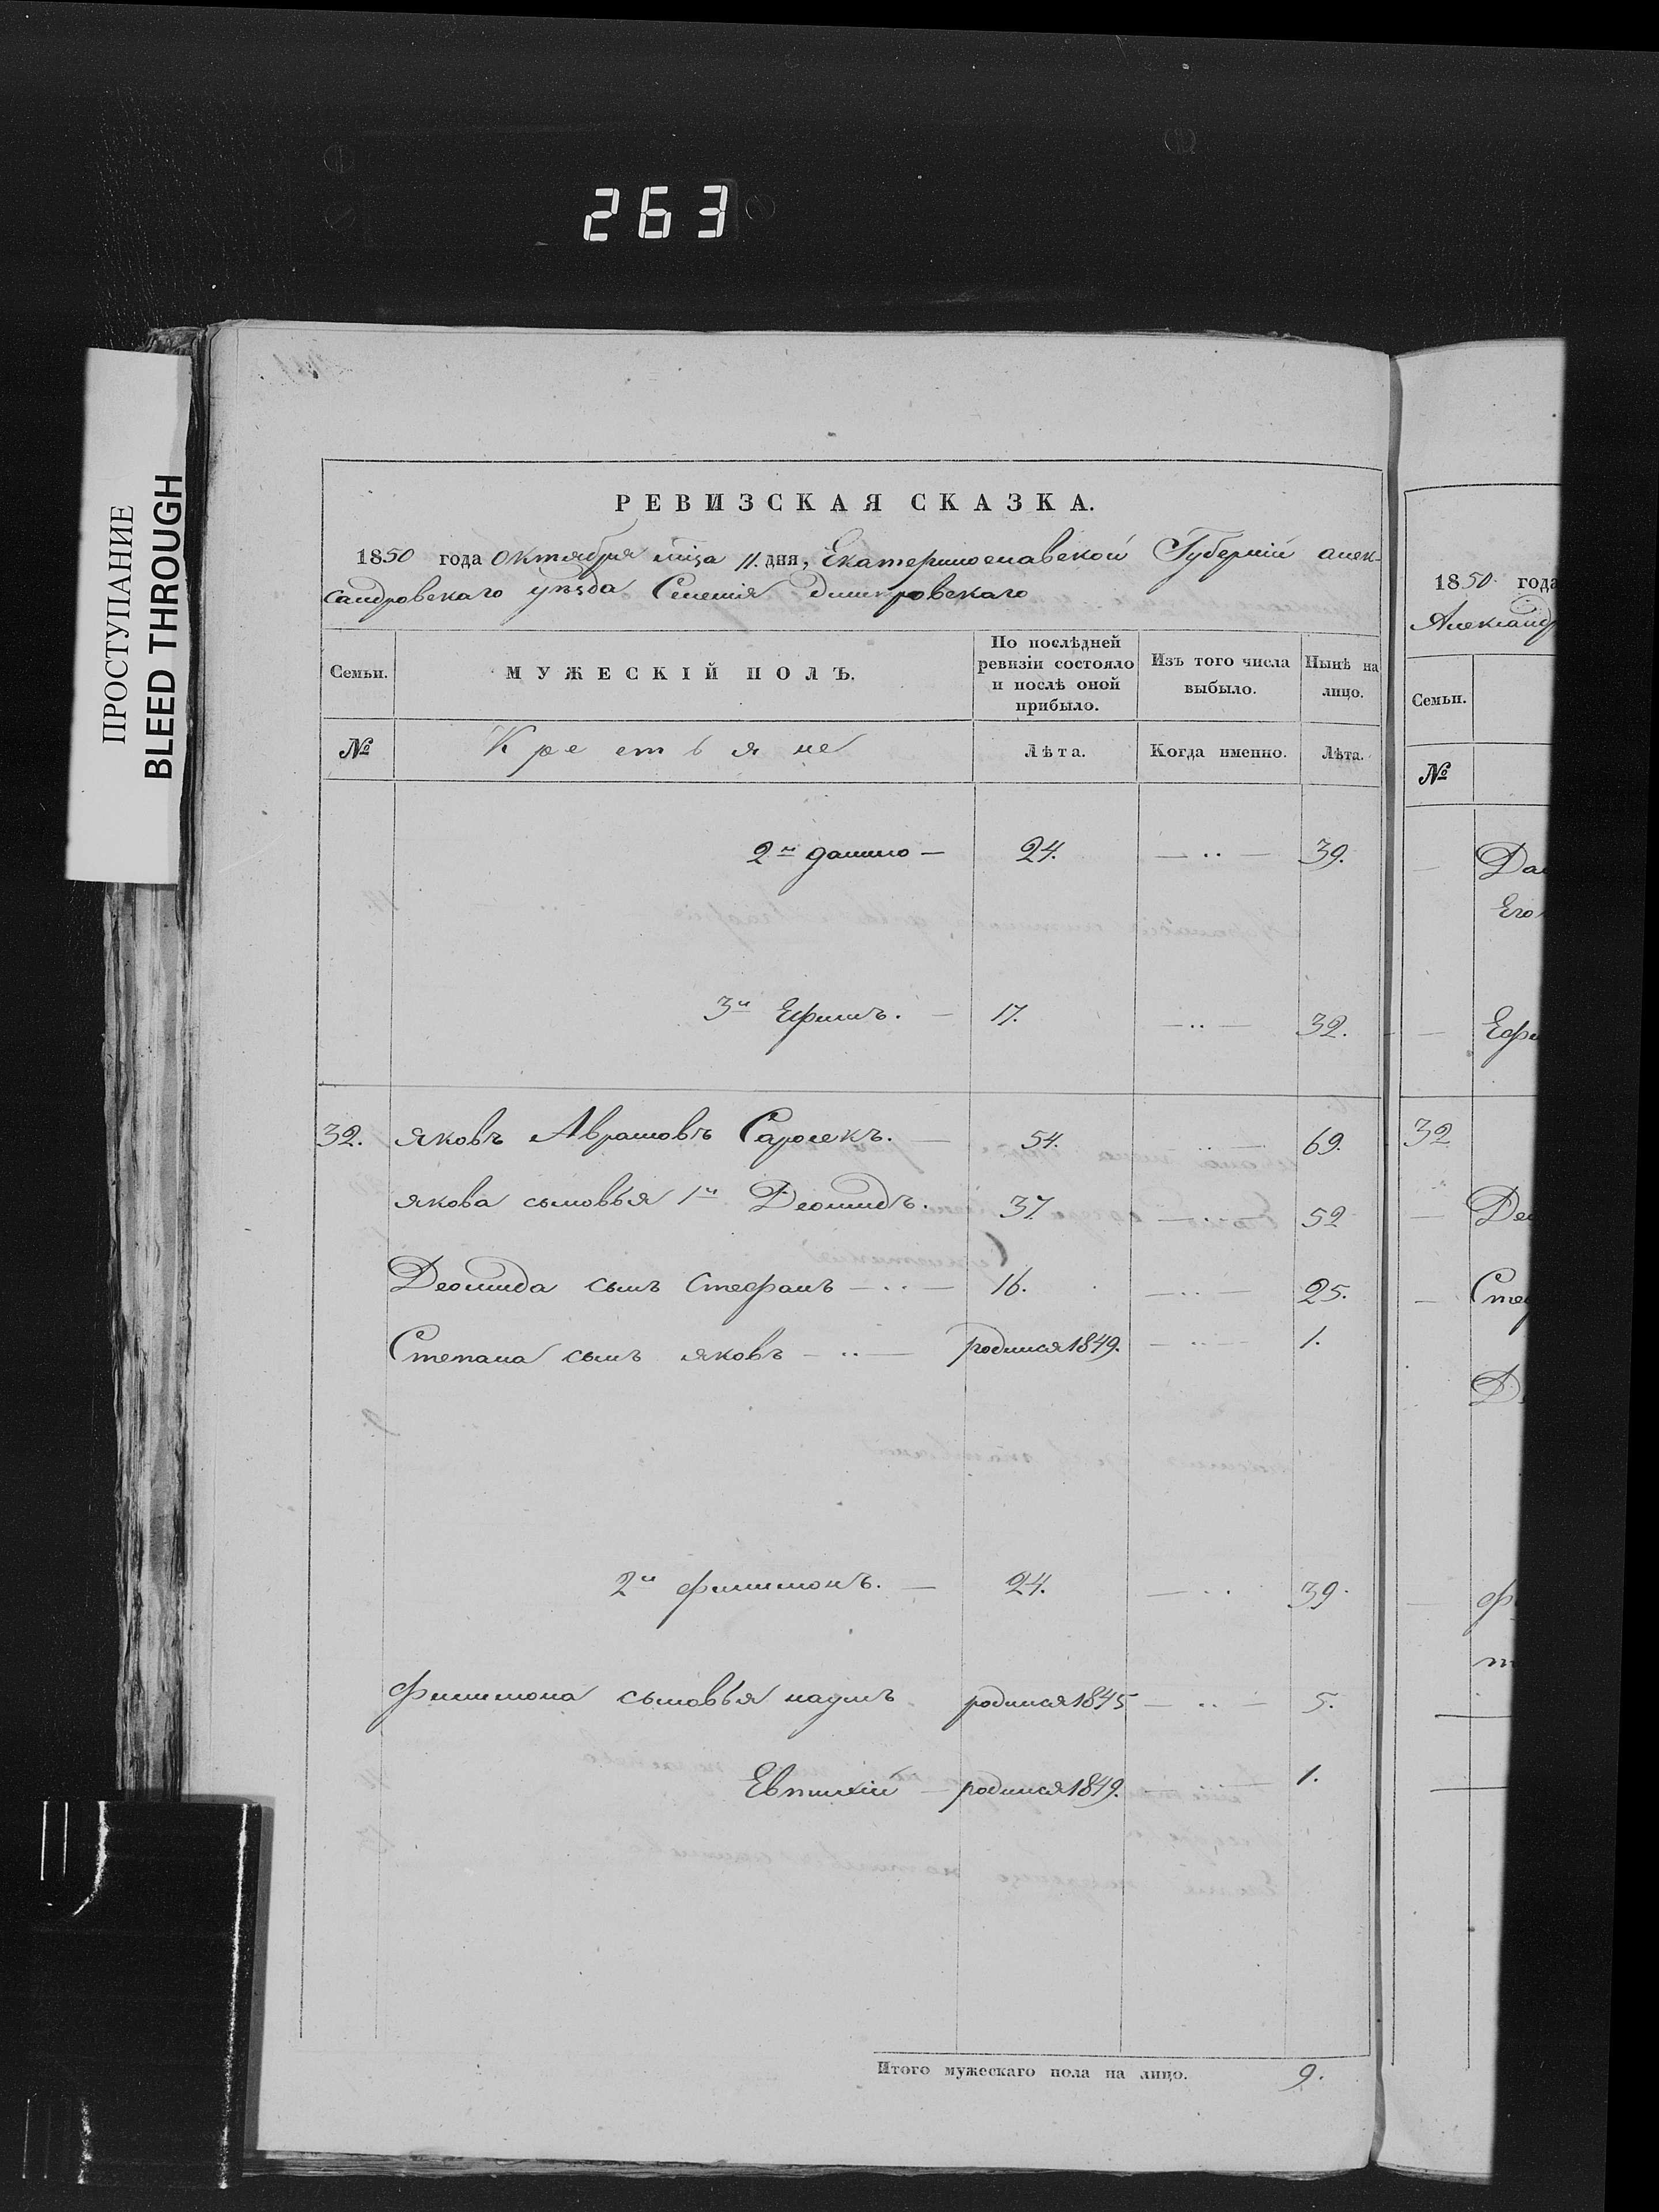 263
ПРОСТУПАНИЕ
BLEED THROUGH
РЕВИЗСКАЯ СКАЗКА.
1850 года Октября мца 11. дня, Екатеринославской Губерніи алек-
сандровскаго уѣзда Селенія Дмитровскаго
Семьи. МУЖЕСКІЙ ПОЛЪ. По послѣдней ревизіи состояло и послѣ оной прибыло. Изъ того числа выбыло. Нынѣ на лицо.
№ Крестьяне Лѣта. Когда именно. Лѣта.
2й данило — 24. — .. — 39.
3й Ефимъ. — 17. — .. — 32.
32. яковъ Аврамовъ — 54. .. — 69.
якова сыновья 1й Деомидъ. 37. — .. — 52
Деомида сынъ Стефанъ — .. — 16. — .. — 25.
Степана сынъ яковъ — .. — родился 1849. — .. — 1.
2й филимонъ. — 24. — .. 39.
филимона сыновья наумъ родился 1845 — .. — 5.
Евтихій — родился 1849. — .. — 1.
Итого мужескаго пола на лицо. 9.
1850 года
Александ
Семьи.
№
Да
Его
Ефи
32
Де
Сте
Д
ф